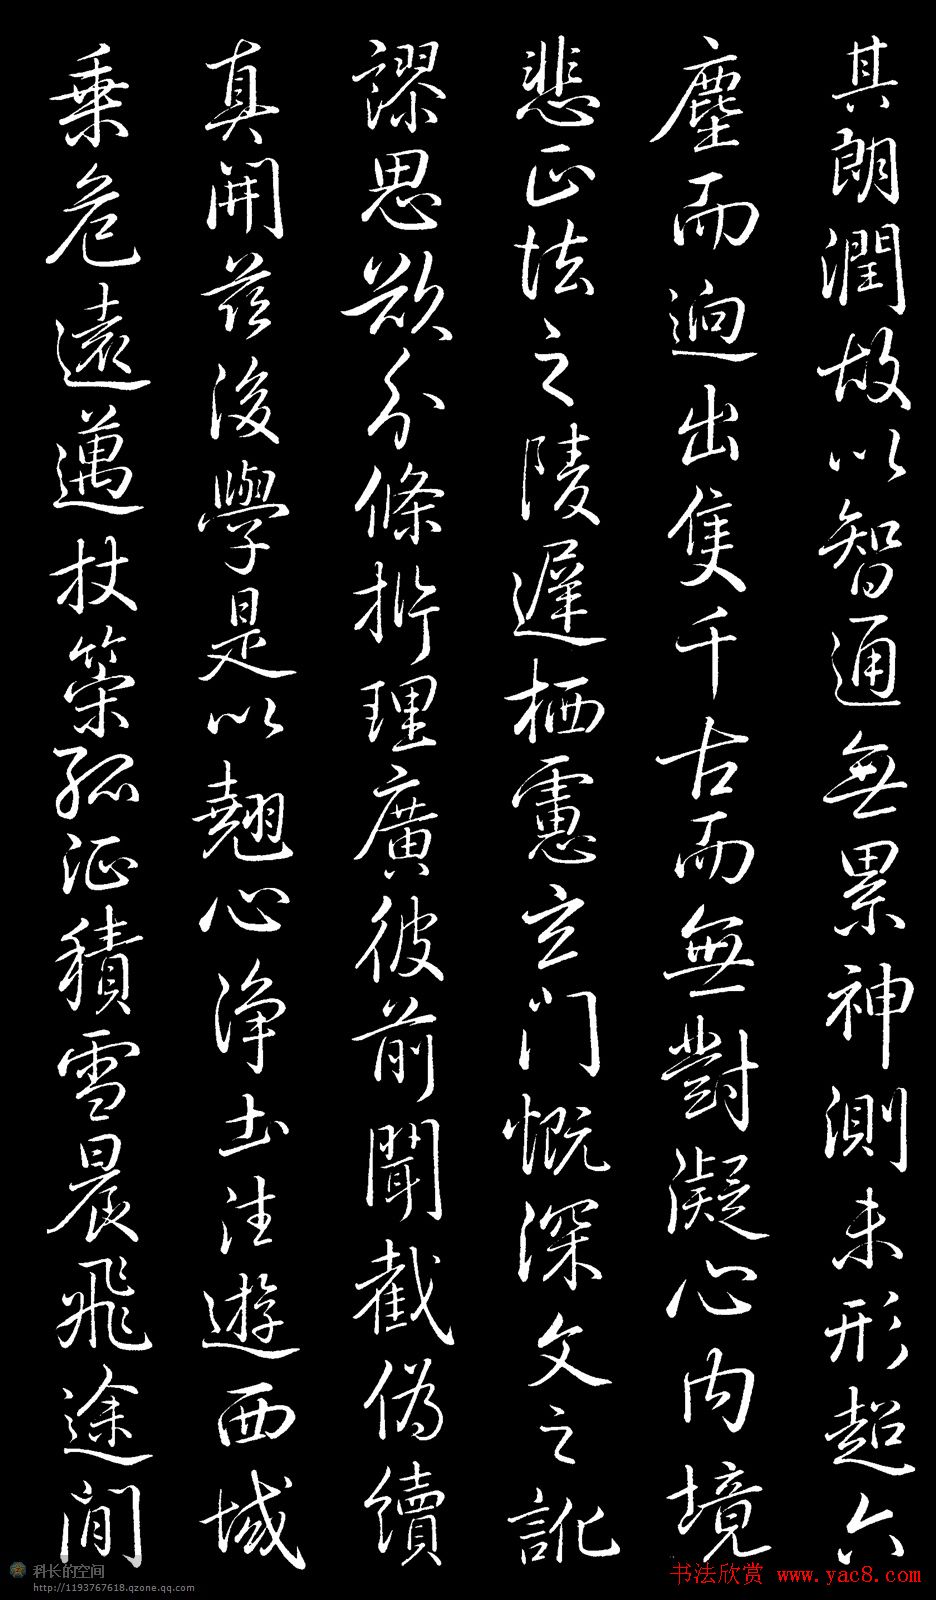 其朗潤故以智通無累神測未形超六
塵而迥出隻千古而無對凝心內境
悲正法之陵遲栖慮玄門慨深文之訛
謬思欲分條析理廣彼前聞截偽續
真開茲後學是以翹心淨土往遊西域
乗危遠邁杖策孤征積雪晨飛途閒
科长的空间
http://1193767618.qzone.qq.com
书法欣赏 www.yac8.com